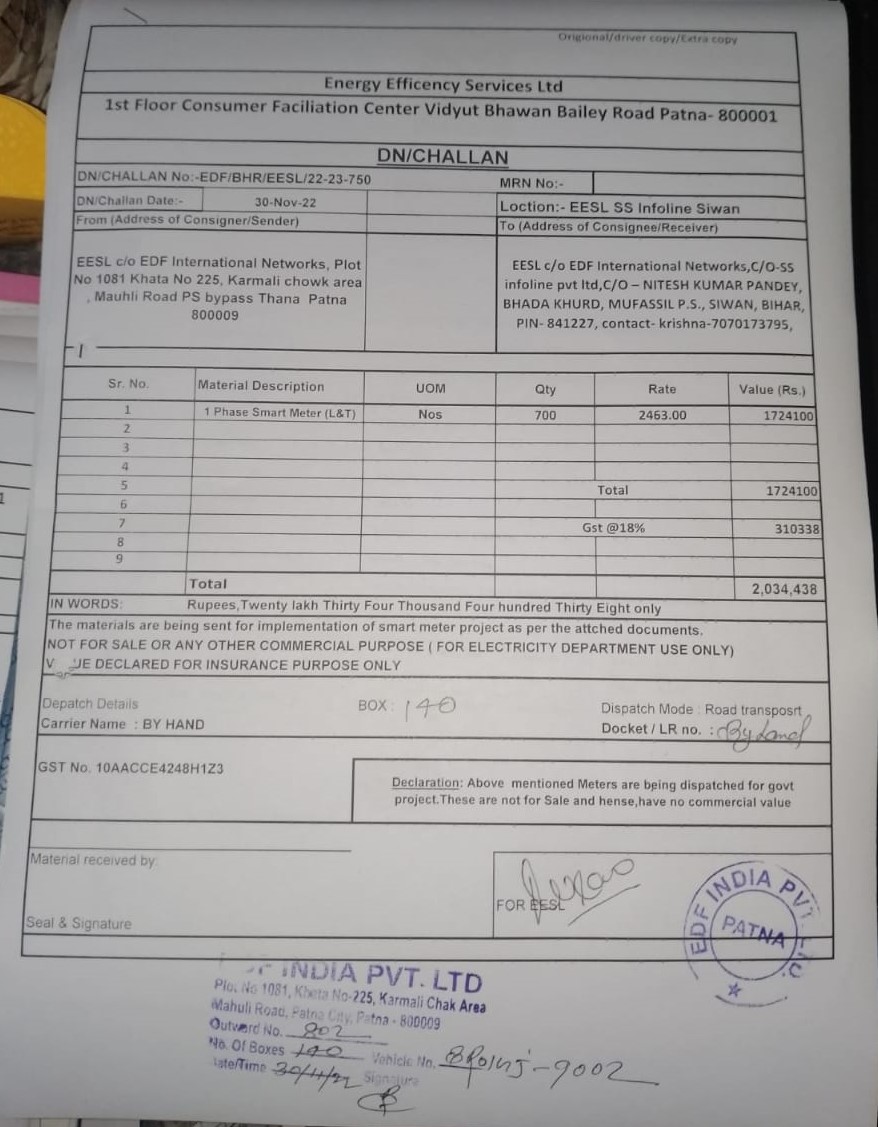 Origional/driver copy/Extra copy
Energy Efficency Services Ltd
1st Floor Consumer Faciliation Center Vidyut Bhawan Bailey Road Patna- 800001
DN/CHALLAN
DN/CHALLAN No:-EDF/BHR/EESL/22-23-750
MRN No:-
DN/Challan Date:- 30-Nov-22
Loction:- EESL SS Infoline Siwan
From (Address of Consigner/Sender)
To (Address of Consignee/Receiver)
EESL c/o EDF International Networks, Plot
No 1081 Khata No 225, Karmali chowk area
, Mauhli Road PS bypass Thana Patna
800009
EESL c/o EDF International Networks,C/O-SS
infoline pvt ltd,C/O – NITESH KUMAR PANDEY,
BHADA KHURD, MUFASSIL P.S., SIWAN, BIHAR,
PIN- 841227, contact- krishna-7070173795,
Sr. No. Material Description UOM Qty Rate Value (Rs.)
1 1 Phase Smart Meter (L&T) Nos 700 2463.00 1724100
2
3
4
5 Total 1724100
6
7 Gst @18% 310338
8
9
Total 2,034,438
IN WORDS: Rupees,Twenty lakh Thirty Four Thousand Four hundred Thirty Eight only
The materials are being sent for implementation of smart meter project as per the attched documents.
NOT FOR SALE OR ANY OTHER COMMERCIAL PURPOSE ( FOR ELECTRICITY DEPARTMENT USE ONLY)
DECLARED FOR INSURANCE PURPOSE ONLY
Depatch Details BOX : 140 Dispatch Mode : Road transposrt
Carrier Name : BY HAND Docket / LR no. : By Hand
GST No. 10AACCE4248H1Z3
Declaration: Above mentioned Meters are being dispatched for govt
project.These are not for Sale and hense,have no commercial value
Material received by:
FOR EESL
Seal & Signature
EDF INDIA PVT. LTD.
PATNA
INDIA PVT. LTD
Plot No 1081, Kheta No-225, Karmali Chak Area
Mahuli Road, Patna City, Patna - 800009
Outward No. 802
No. Of Boxes 140 Vehicle No. 9002
Date/Time 30/11/22 Signature